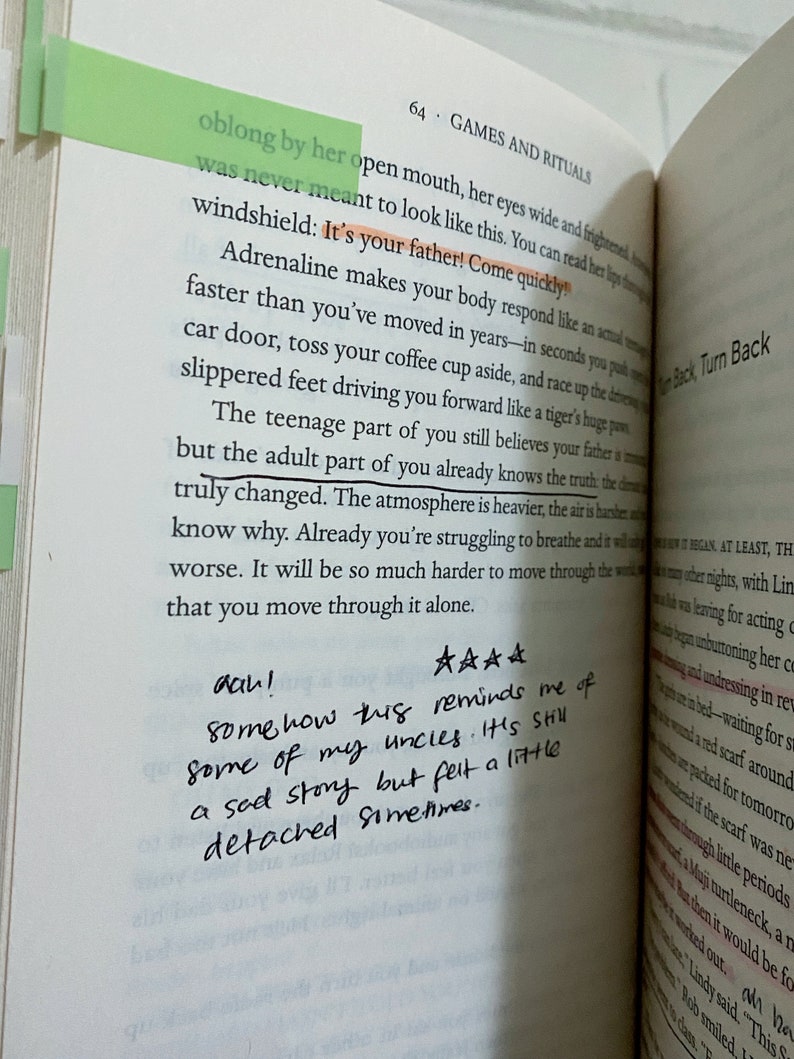 64 · GAMES AND RITUALS
oblong by her open mouth, her eyes wide and frightened.
was never meant to look like this. You can read her lips through
windshield: It's your father! Come quickly!
Adrenaline makes your body respond like an actual
faster than you've moved in years—in seconds you push open
car door, toss your coffee cup aside, and race up the driveway
slippered feet driving you forward like a tiger's huge paws.
The teenage part of you still believes your father is
but the adult part of you already knows the truth: the
truly changed. The atmosphere is heavier, the air is harsher
know why. Already you're struggling to breathe and it will only
worse. It will be so much harder to move through the world
that you move through it alone.
☆☆☆☆
aah!
somehow this reminds me of
some of my uncles. It's still
a sad story but felt a little
detached sometimes.
Turn Back, Turn Back
IT BEGAN. AT LEAST, TH
many other nights, with Lin
was leaving for acting
began unbuttoning her
dressing and undressing in rev
The girls are in bed—waiting for
wound a red scarf around
are packed for tomorro
wondered if the scarf was ne
through little periods
scarf, a Muji turtleneck, a
But then it would be fo
worked out.
Lindy said. "This
Rob smiled.
to class.